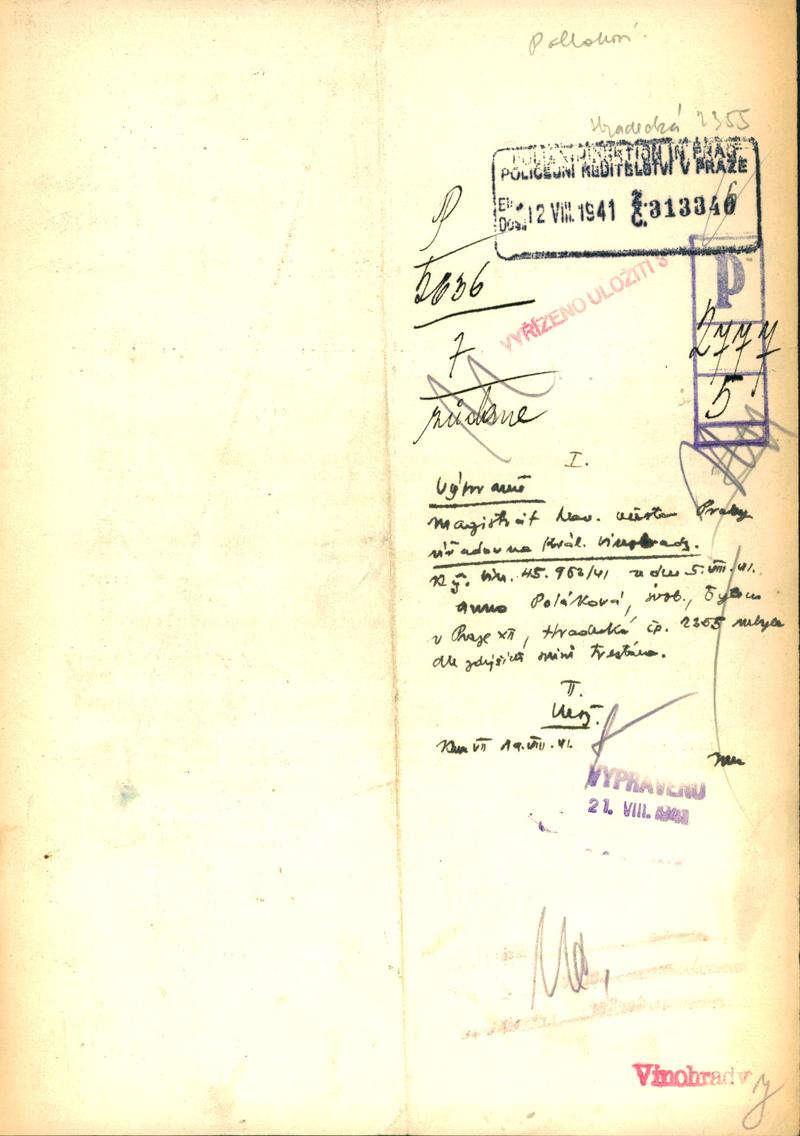 Hradecká 2355
POLIZEIDIREKTION IN PRAG
POLICEJNÍ ŘEDITELSTVÍ V PRAZE
12 VIII. 1941 Č. 313340
P
5636
VYŘÍZENO ULOŽITI
7
P
2777
5
I.
Magistrát hlav. města Prahy
úřadovna Král. Vinohrady.
K č. 45.963/41 z dne 5.VIII.41.
Anna Poláková, svob., bytem
v Praze XII, Hradecká čp. 2355 nebyla
dle zdejších trestána.
II.
VII 19.VIII.41.
VYPRAVENO
21. VIII. 1941
Vinohrady